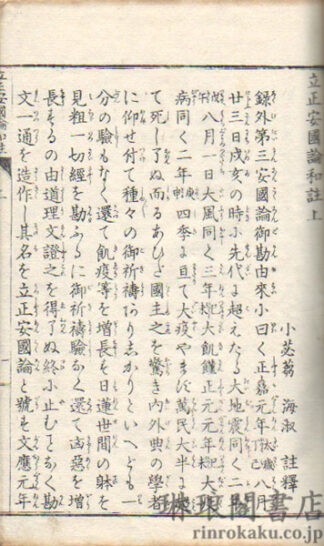 立正安國論和註上
小苾芻 海淑 註釋
錄外第三安國論御勘由來小曰く正嘉元年丁巳太歲八月
廿三日戌亥の時小先代に超えたる大地震同く二年
戊午八月一日大風同く三年己未大飢饉正元元年己未大疫
病同く二年庚申四季に亘て大疫やまず萬民大半に超
て死し了ぬ而るあひだ國主之を驚き內外典の學者
に仰せ付て種々の御祈禱ありしかりといへども一
分の驗もなく還て飢疫等を增長を日蓮世間の躰を
見粗一切經を勘ふるに御祈禱驗なく還て凶惡を增
長そるの由道理文證之を得了ぬ終小止むことなく勘
文一通を造作し其名を立正安國論と號を文應元年
立正安國論和註 上 一
琳琅閣書店
rinrokaku.co.jp